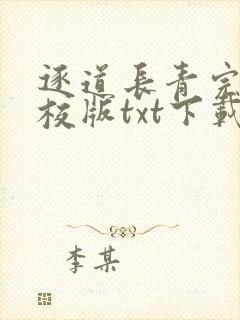 逐道長青完
校版txt下載
李某